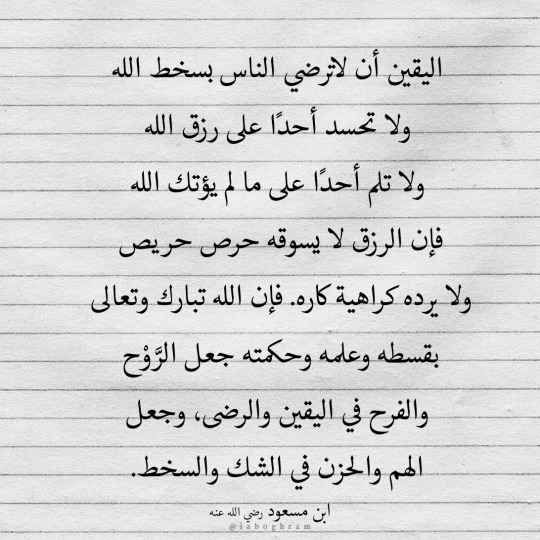 اليقين أن لاترضي الناس بسخط الله
ولا تحسد أحدًا على رزق الله
ولا تلم أحدًا على ما لم يؤتك الله
فإن الرزق لا يسوقه حرص حريص
ولا يرده كراهية كاره. فإن الله تبارك وتعالى
بقسطه وعلمه وحكمته جعل الرَّوْح
والفرح في اليقين والرضى، وجعل
الهم والحزن في الشك والسخط.
ابن مسعود رضي الله عنه
@iaboghram